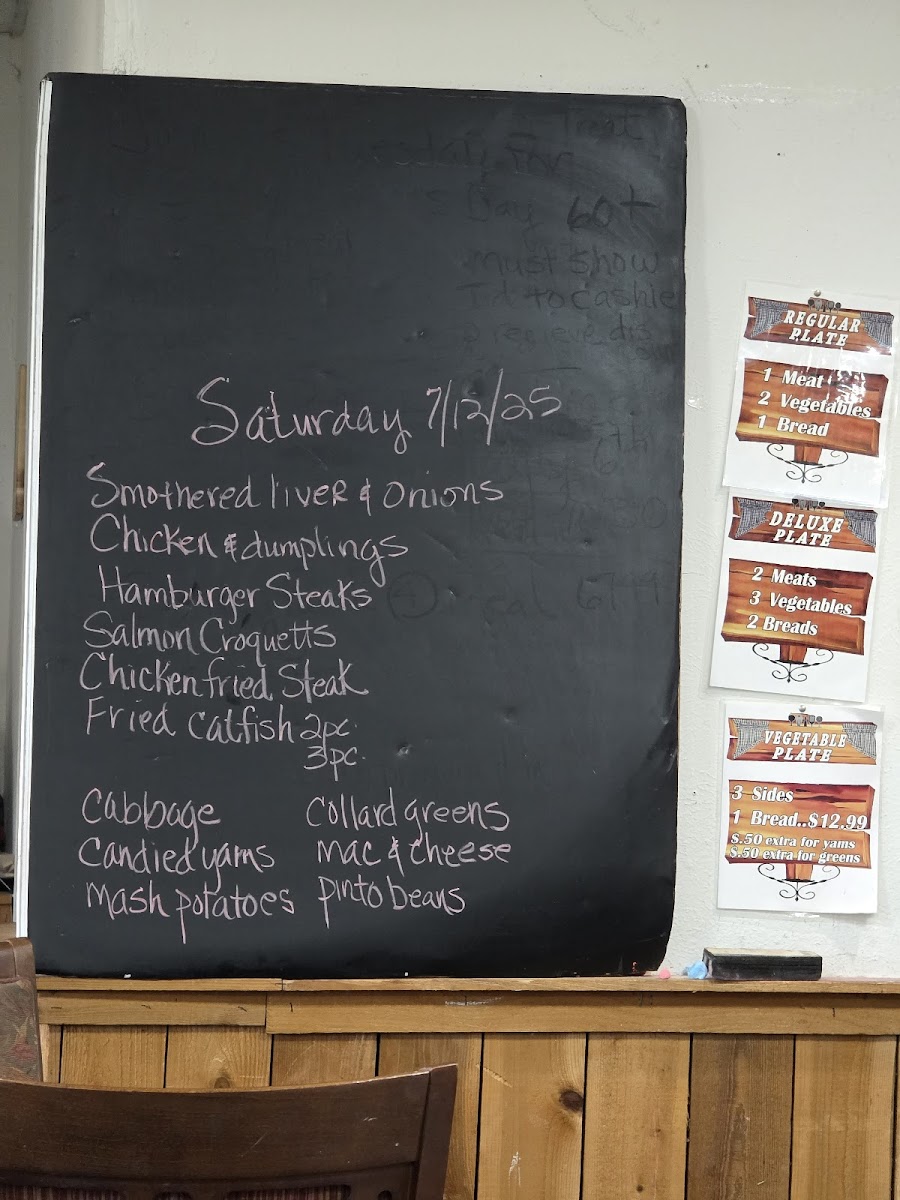 Treat
Tuesday for
's Day 60+
must show
Id to cashie
Saturday 7/12/25
Smothered liver & onions
Chicken & dumplings
Hamburger Steaks
Salmon Croquetts
Chicken fried Steak
Fried catfish 2pc
3pc.
Cabbage collard greens
Candied yams mac & cheese
mash potatoes pinto beans
REGULAR
PLATE
1 Meat
2 Vegetables
1 Bread
DELUXE
PLATE
2 Meats
3 Vegetables
2 Breads
VEGETABLE
PLATE
3 Sides
1 Bread..$12.99
$.50 extra for yams
$.50 extra for greens